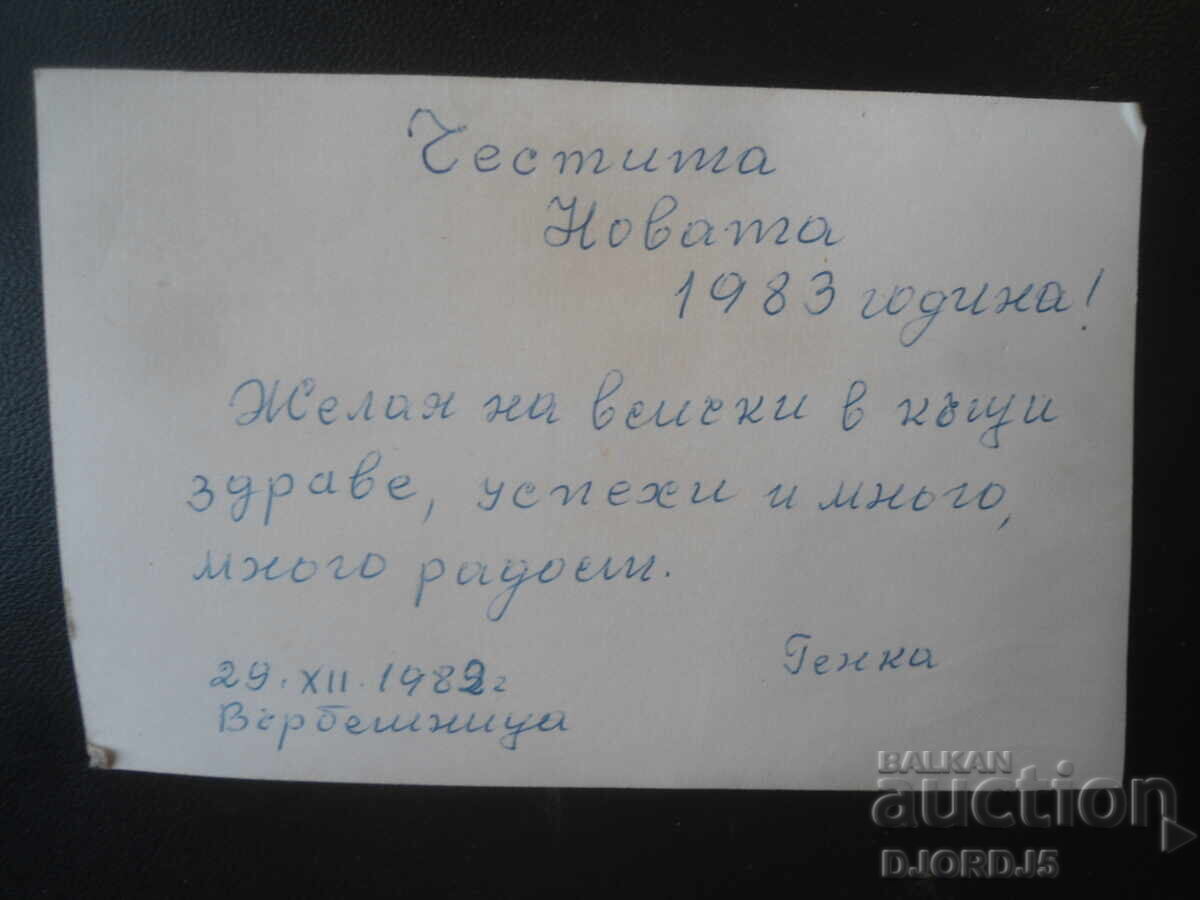 Честита
Новата
1983 година!
Желая на всички в къщи
здраве, успехи и много,
много радост.
Генка
29.XII.1982г
Върбешница
BALKAN
auction
DJORDJ5